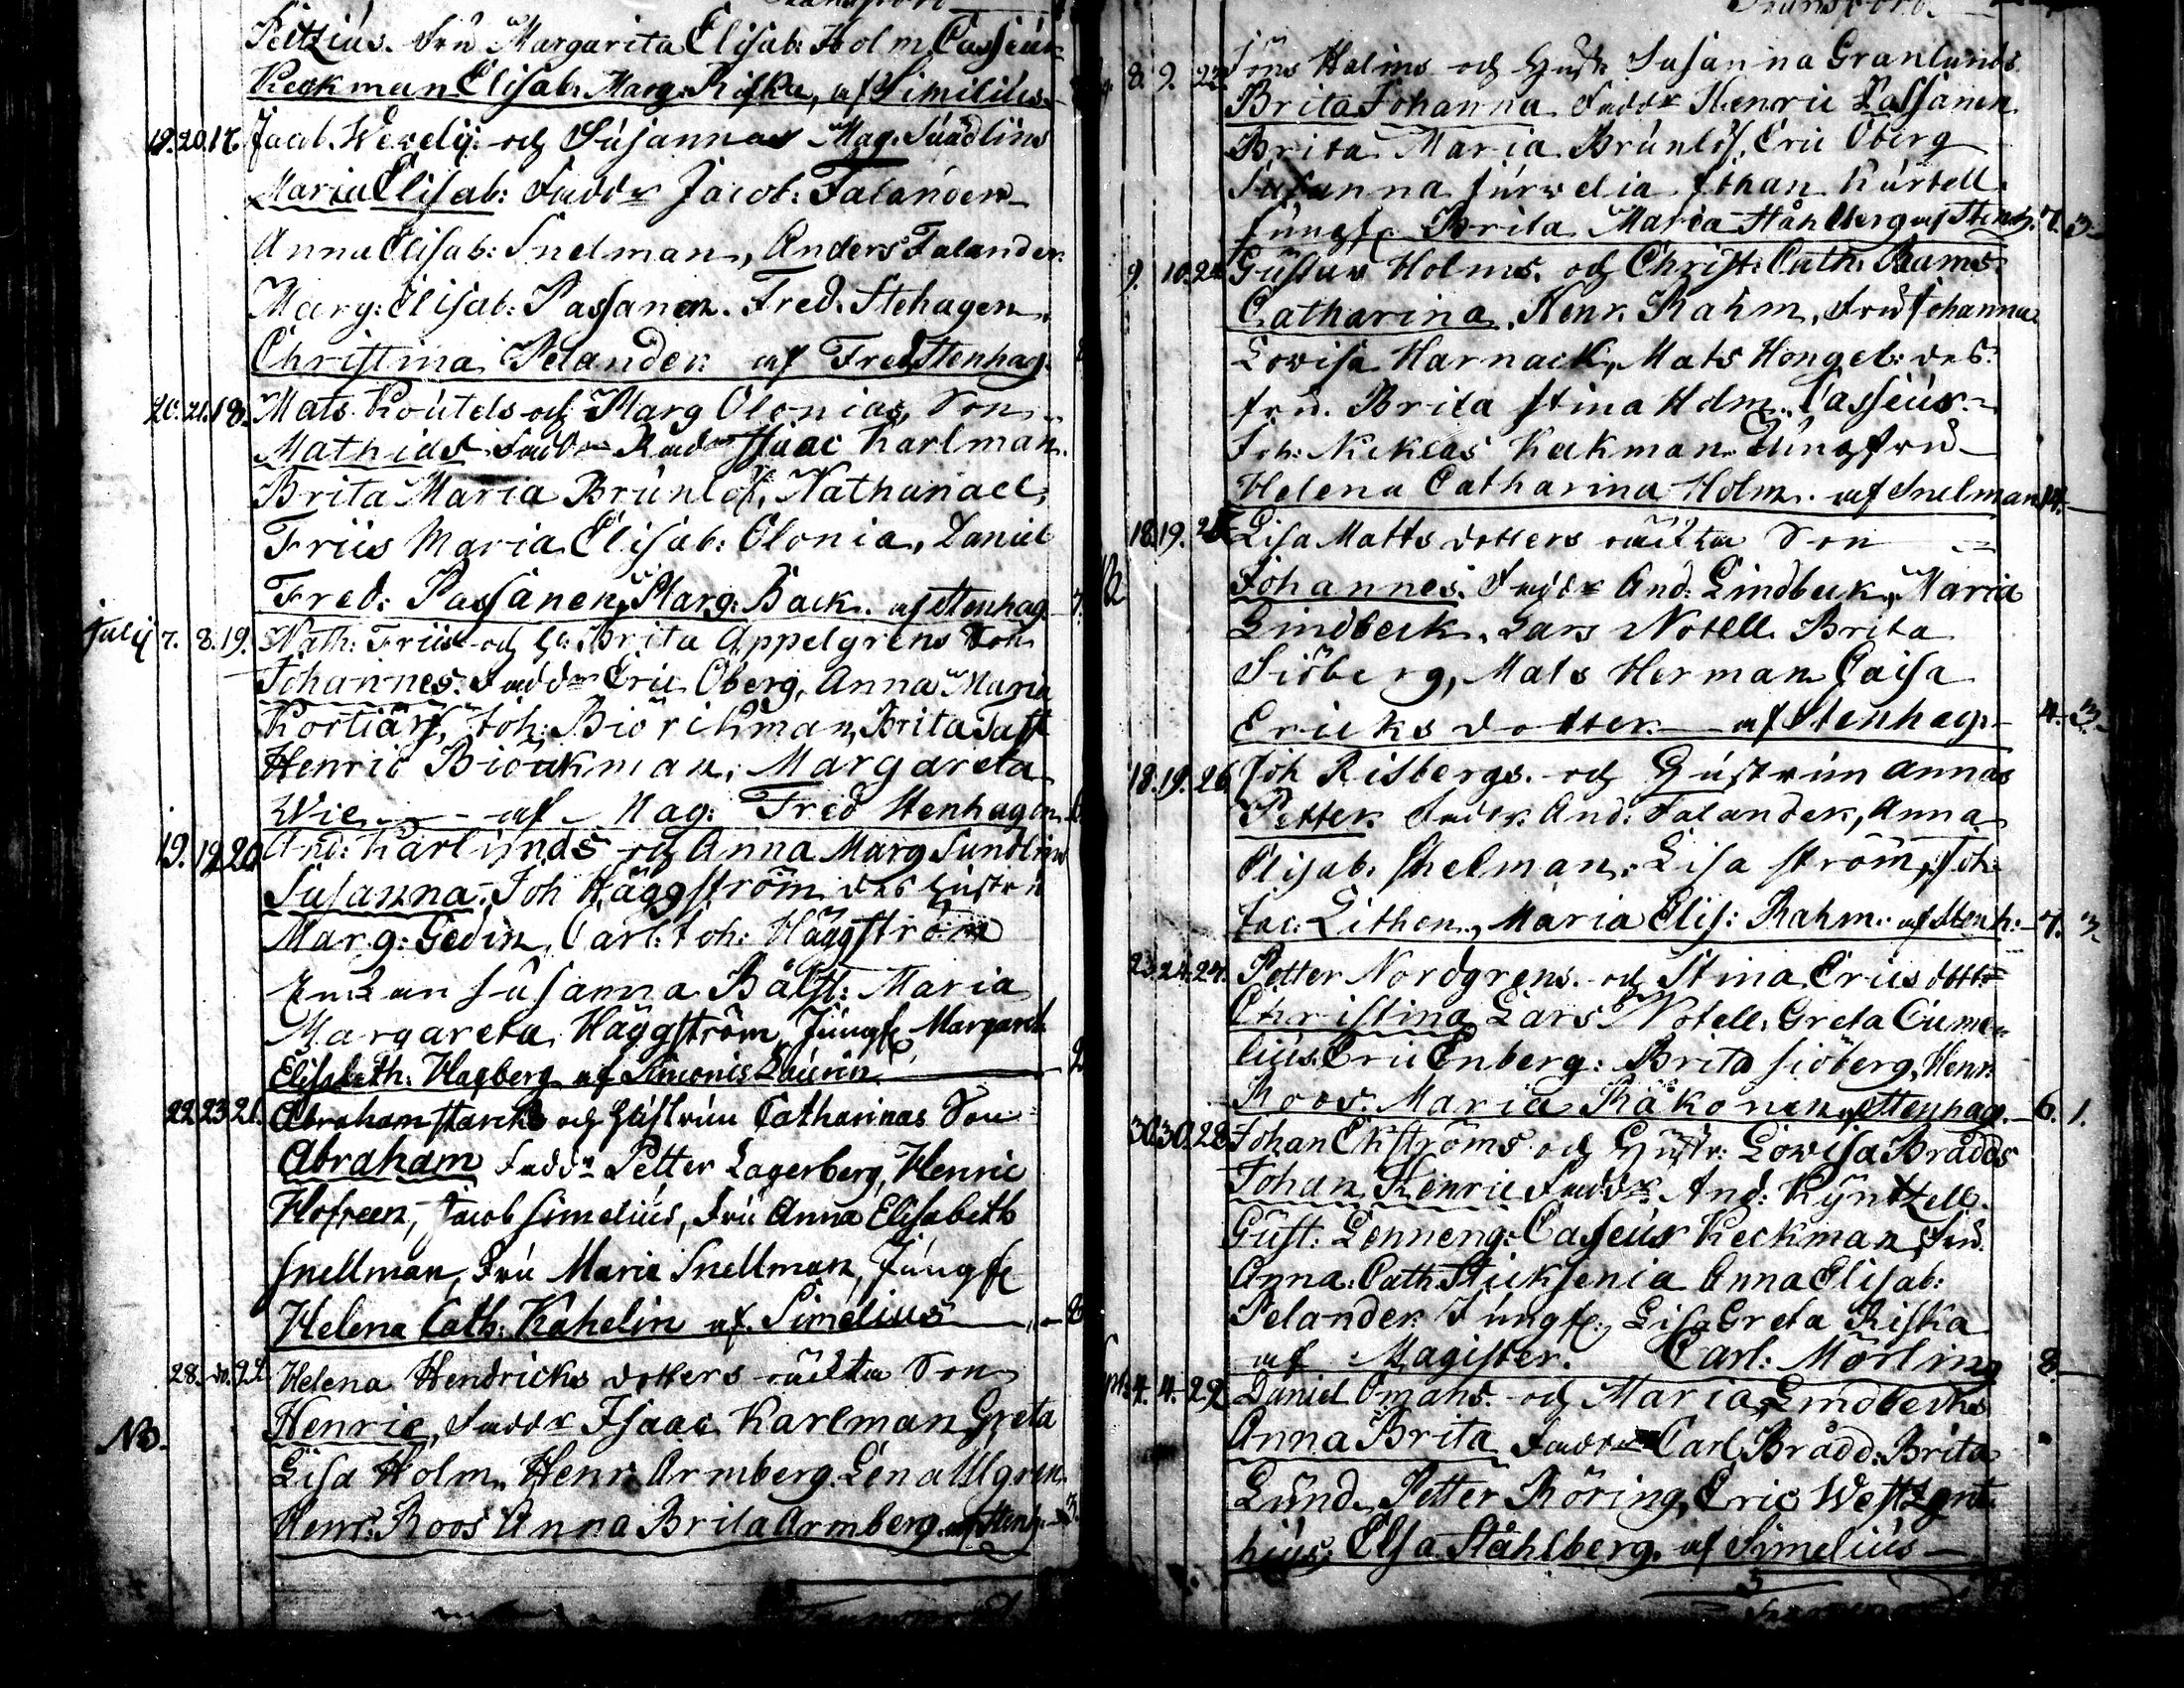 Transport
Peitzius. Fru Margarita Elisab: Holm, Casseur
Keckman Elisab. Marg. Riska, af Similius.
19. 20. 17. Jacob Wevelij: och Susannas Mag. Sundlins
Maria Elisab: Fadd:r Jacob: Falander
Anna Elisab: Snelman, Anders Falander
Marg: Elisab: Passanen. Fred. Stehagen.
Christina Pelander. af Fred Stenhag.
20. 21. 18. Mats Koutels och Marg Olonias, Son
Mathias Fadd:r Isaac Karlman.
Brita Maria Brunlöf, Nathanael,
Friis Maria Elisab: Olonia, Daniel
Fred: Passanen, Marg: Back. af Stenhag. 7.
Julij 7. 8. 19. Nath: Friis och h. Brita Appelgrens Son
Johannes. Fadd:r Eric Öberg, Anna Maria
Kortiärf, Joh: Biörckman, Brita Sass
Henric Biörkman, Margareta
Wie af Mag: Fred Stenhagen
19. 19 20. And: Karlunds och Anna Marg Sundlins
Susanna. Joh Häggström des hustru
Marg: Gedin, Carl: Joh: Häggström
Enkan Susanna Bälst: Maria
Margareta Häggström, Jungf. Margaret
Elisabeth. Hagberg af Simonis Laurin 2
22 23 21. Abraham Starcks och Hustrun Catharinas Son
Abraham Fadd:r Petter Lagerberg, Henric
Hofreen, Jacob Simelius, Fru Anna Elisabeth
Snellman, Fru Maria Snellman, Jungf.
Helena Cath: Kahelin af Simelius 8
28. do. 22. Helena Hendricks dotters oächta Son
NB. Henric, Fadd:r Isaac Karlman Greta
Lisa Holm. Henr. Armberg. Lena Ulgren
Henr: Roos Anna Brita Armberg. af Stenh. 3.
Transport
8. 9. 23. Jöns Holms och Hustr. Susanna Granlunds
Brita Johanna Fadd:r Henric Passanen
Brita Maria Brunlöf, Eric Öberg
Susanna Jurvelia Johan Kurtell.
Jungf. Brita Maria Ståhlberg af Stenh. 7. 3.
9. 10. 24. Gustav Holms. och Christ: Cath: Rams.
Catharina, Henr. Rahm, Fru Johanna
Lovisa Harnack, Mats Hongel: des:
fru. Brita Stina Holm. Casseur.
Joh: Niklas Keckman Jungfru
Helena Catharina Holm. af Snelman 14.
18. 19. 25. Lisa Matts dotters oächta Son
Johannes. Fadd:r And: Lindbeck, Maria
Lindbeck. Lars Notell. Brita
Siöberg, Mats Herman Caisa
Ericks dotter af Stenhag. 4. 3.
18. 19. 26. Joh Risbergs. och Hustrun Annas
Petter Fadd:r. And: Falander, Anna
Elisab. Snelman. Lisa Ström, Joh:
Jac: Lithen, Maria Elis: Rahm. af Stenh. 7. 3.
23. 24. 27. Petter Nordgrens. och Stina Erics dott:r
Christina Lars Notell. Greta Cumenlius.
Eric Enberg: Brita Siöberg, Henr.
Roos. Maria Räkonen. af Stenhag. 6. 1.
30. 30. 28. Johan Ekströms och Hustr: Lovisa Brådds
Johan Henric Fadd:r And: Kyntzell.
Gust: Lenneng: Caseur Keckman, Fru.
Anna: Cath Stuksenia Anna Elisab:
Pelander. Jungf. Lisa Greta Riska
af Magister. Carl: Mörling 8
4. 4. 29. Daniel Omans. och Maria Lindbecks
Anna Brita Fadd:r Carl Brådd. Brita
Lund. Petter Röring, Eric Westzynthius,
Elsa Ståhlberg. af Simelius